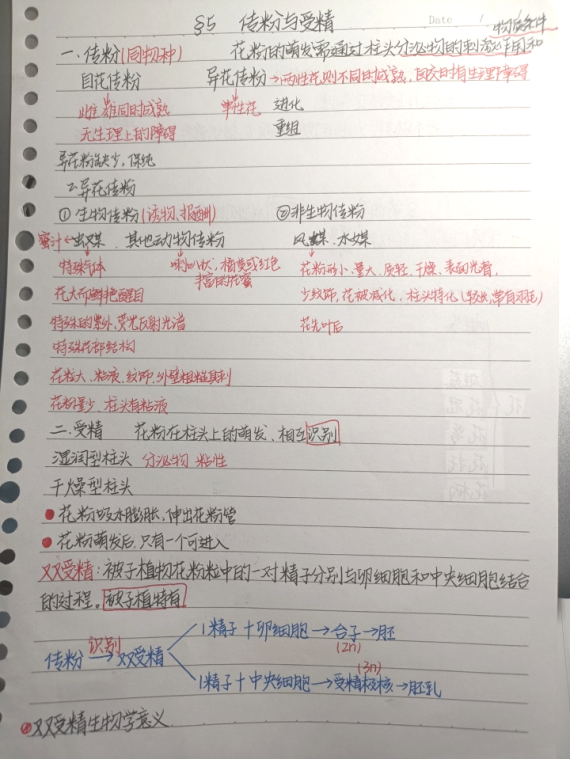 §5 传粉与受精 Date /
物质条件
一.传粉(同物种) 花粉的萌发需通过柱头分泌物的刺激作用和
自花传粉 异花传粉→两性花则不同时成熟,
雌雄同时成熟 单性花 进化
无生理上的障碍 重组
异花粉缺少,保纯
2.异花传粉
①生物传粉(诱物、报酬) ②非生物传粉
蜜汁←虫媒、其他动物传粉 风媒、水媒
特殊气体 喇叭状,橘黄或红色 花粉形小、量大、质轻、干燥、表面光滑,
丰富的花蜜
花大而鲜艳醒目 少纹饰,花被减化,柱头特化
特殊的紫外、荧光反射光谱 花先叶后
特殊花部结构
花粒大、粘液、纹饰、外壁粗糙具刺
花粉量少,柱头有粘液
二.受精 花粉在柱头上的萌发、相互识别
湿润型柱头 分泌物 粘性
干燥型柱头
●花粉吸水膨胀,伸出花粉管
●花粉萌发后,只有一个可进入
双受精:被子植物花粉粒中的一对精子分别与卵细胞和中央细胞结合
的过程。被子植特有
1精子+卵细胞→合子→胚
识别 (2n)
传粉→双受精 (3n)
1精子+中央细胞→受精极核→胚乳
双受精生物学意义